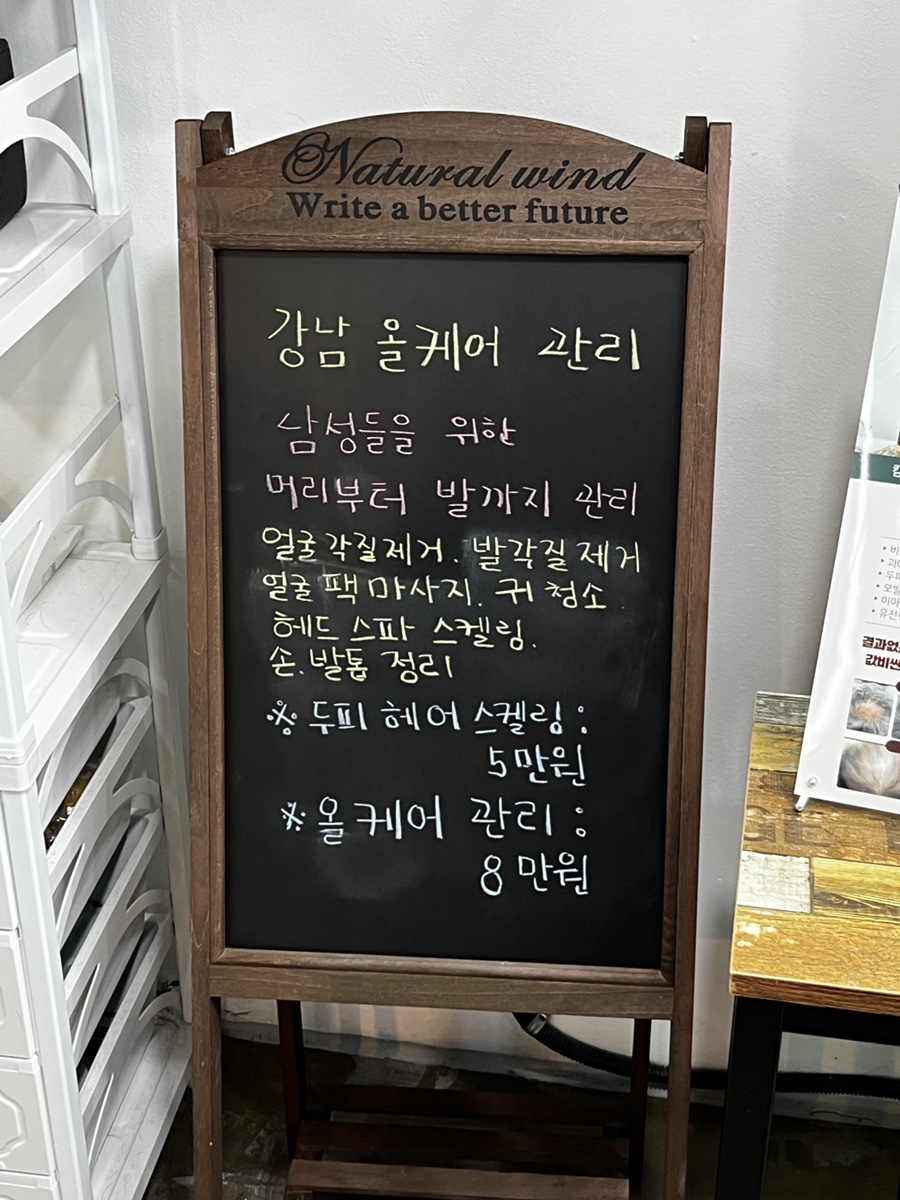 Natural wind
Write a better future
강남 올케어 관리
남성들을 위한
머리부터 발까지 관리
얼굴각질제거. 발각질제거
얼굴 팩 마사지. 귀 청소
헤드 스파 스켈링.
손.발톱 정리
※ 두피 헤어 스켈링:
5만원
※ 올케어 관리:
8만원
결과없
값비싼